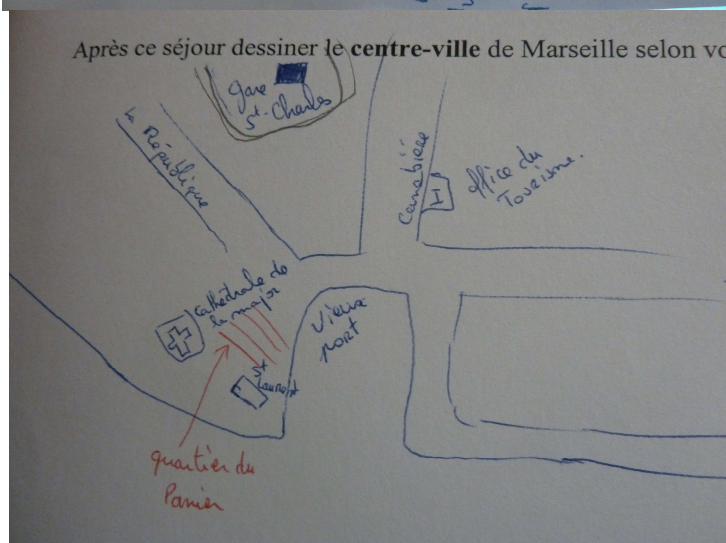 Après ce séjour dessiner le centre-ville de Marseille selon vo
gare
St-Charles
la République
Canebière
office du
Tourisme.
cathédrale de
la major
Vieux
port
St
Laurent
quartier du
Panier